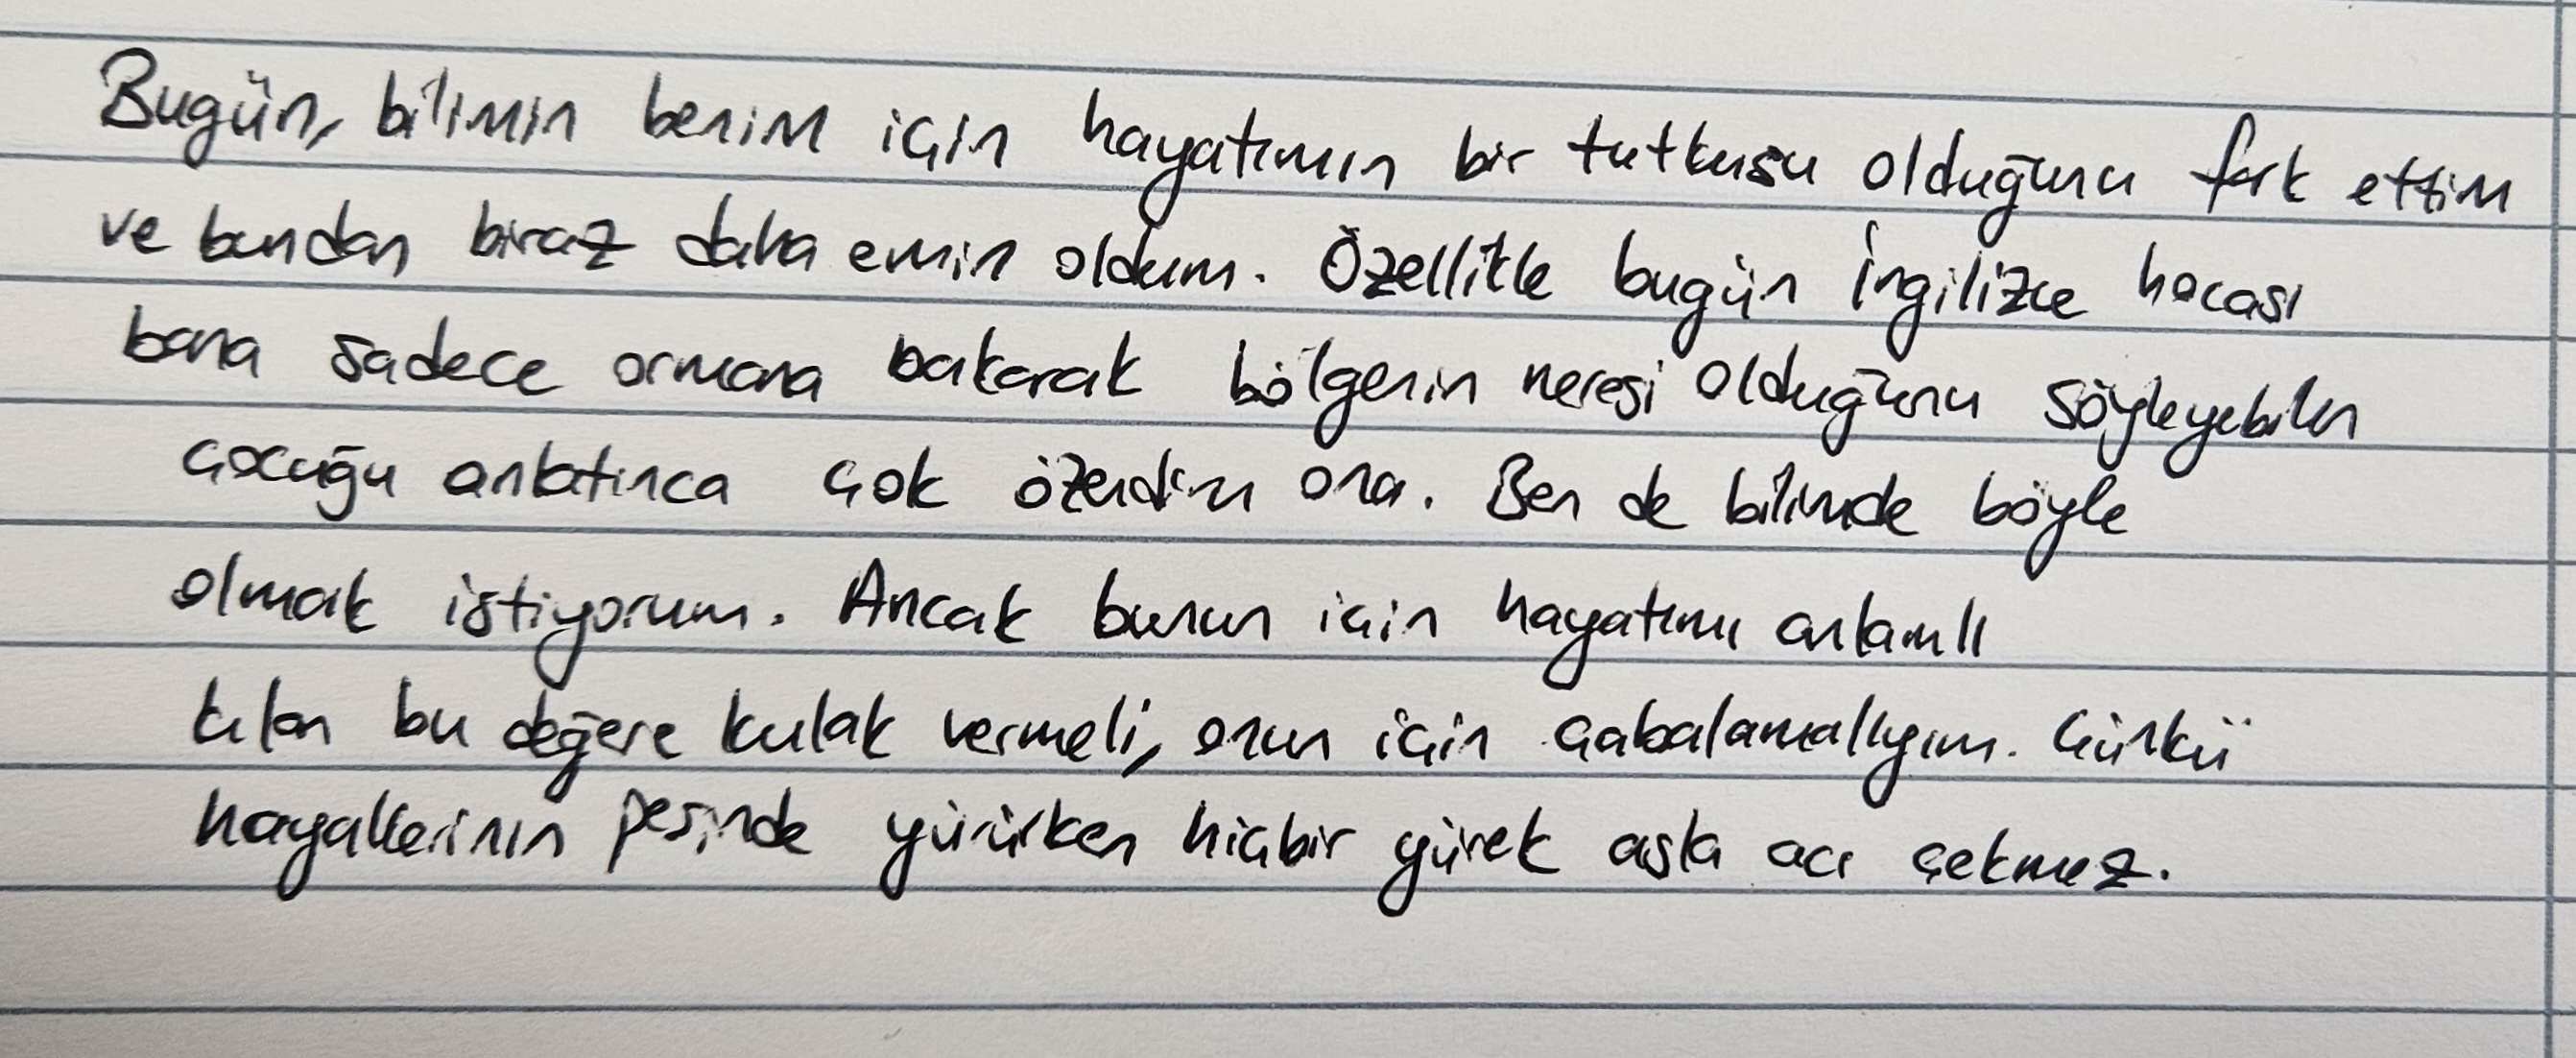 Bugün, bilimin benim için hayatımın bir tutkusu olduğunu fark ettim
ve bundan biraz daha emin oldum. Özellikle bugün İngilizce hocası
bana sadece ormana bakarak bölgenin neresi olduğunu söyleyebilen
çocuğu anlatınca çok özendim ona. Ben de bilimde böyle
olmak istiyorum. Ancak bunun için hayatımı anlamlı
kılan bu değere kulak vermeli, onun için çabalamalıyım. Çünkü
hayallerinin peşinde yürürken hiçbir yürek asla acı çekmez.